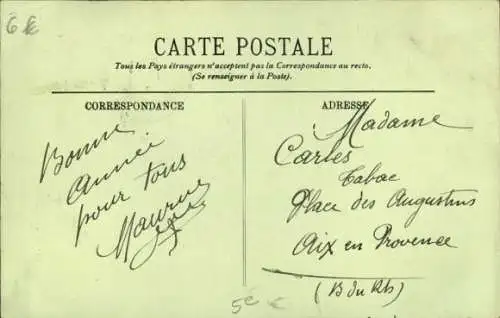 6€
CARTE POSTALE
Tous les Pays étrangers n'acceptent pas la Correspondance au recto.
(Se renseigner à la Poste).
CORRESPONDANCE
Bonne
Année
pour tous
Maurice
ADRESSE
Madame
Carles
Tabac
Place des Augustins
Aix en Provence
(B du Rh)
5€